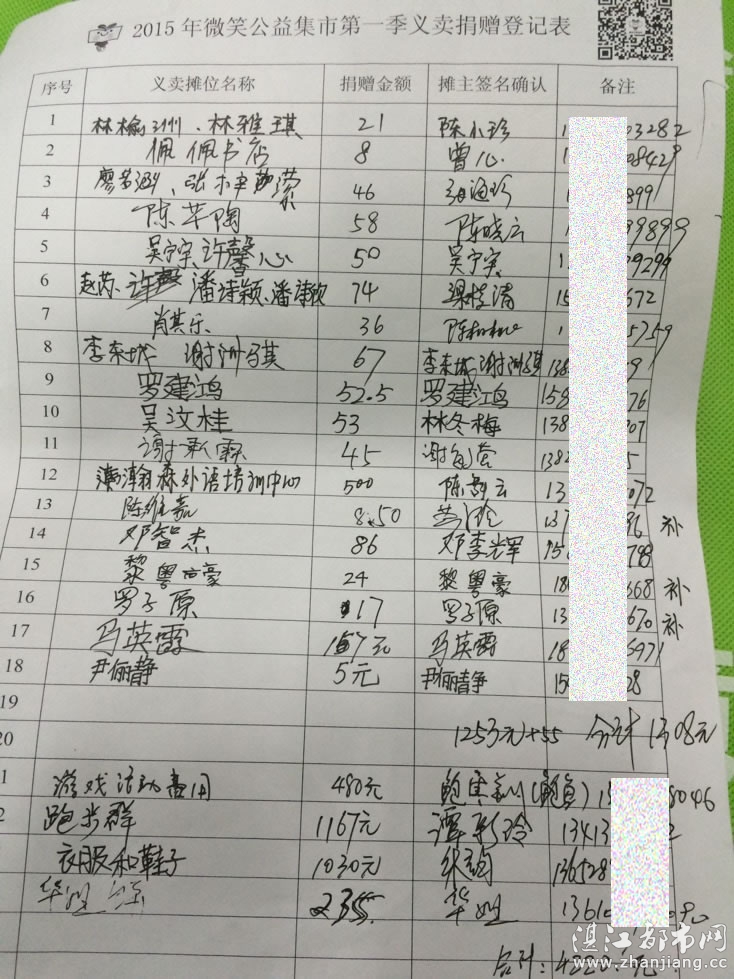 2015年微笑公益集市第一季义卖捐赠登记表
序号 义卖摊位名称 捐赠金额 摊主签名确认 备注
1 林榆 、林雅琪 21 陈小珍 03282
2 佩佩书店 8 曾心 08429
3 廖 、张 46 海珍 899
4 陈苹陶 58 陈晓云 99899
5 吴宇宾 许馨心 50 吴宇宾 9299
6 赵芮、许 潘诗颖、潘诗欣 74 梁桂清 15 672
7 肖其乐 36 陈 5759
8 李东城 谢洲琪 67 李东城 谢洲琪 138 9
9 罗建鸿 52.5 罗建鸿 158 76
10 吴汶桂 53 林冬梅 138 07
11 谢 霖 45 谢 138 5
12 瀚森外语培训中心 500 陈 云 13 072
13 陈维嘉 8.50 137 96 补
14 邓智杰 86 邓李光辉 15 798
15 黎粤豪 24 黎粤豪 18 668 补
16 罗子原 17 罗子原 13 670 补
17 马英雷 157元 马英雷 18 6971
18 尹俪静 5元 尹俪静 15 28
19
20 1253元+55 合计1308元
1 游戏活动费用 480元 8046
2 跑步群 1167元 谭彩玲 13413 2
衣服和鞋子 1030元 136528
华姐 235 华姐 13610 90
合计: 元
湛江都市网
www.zhanjiang.cc